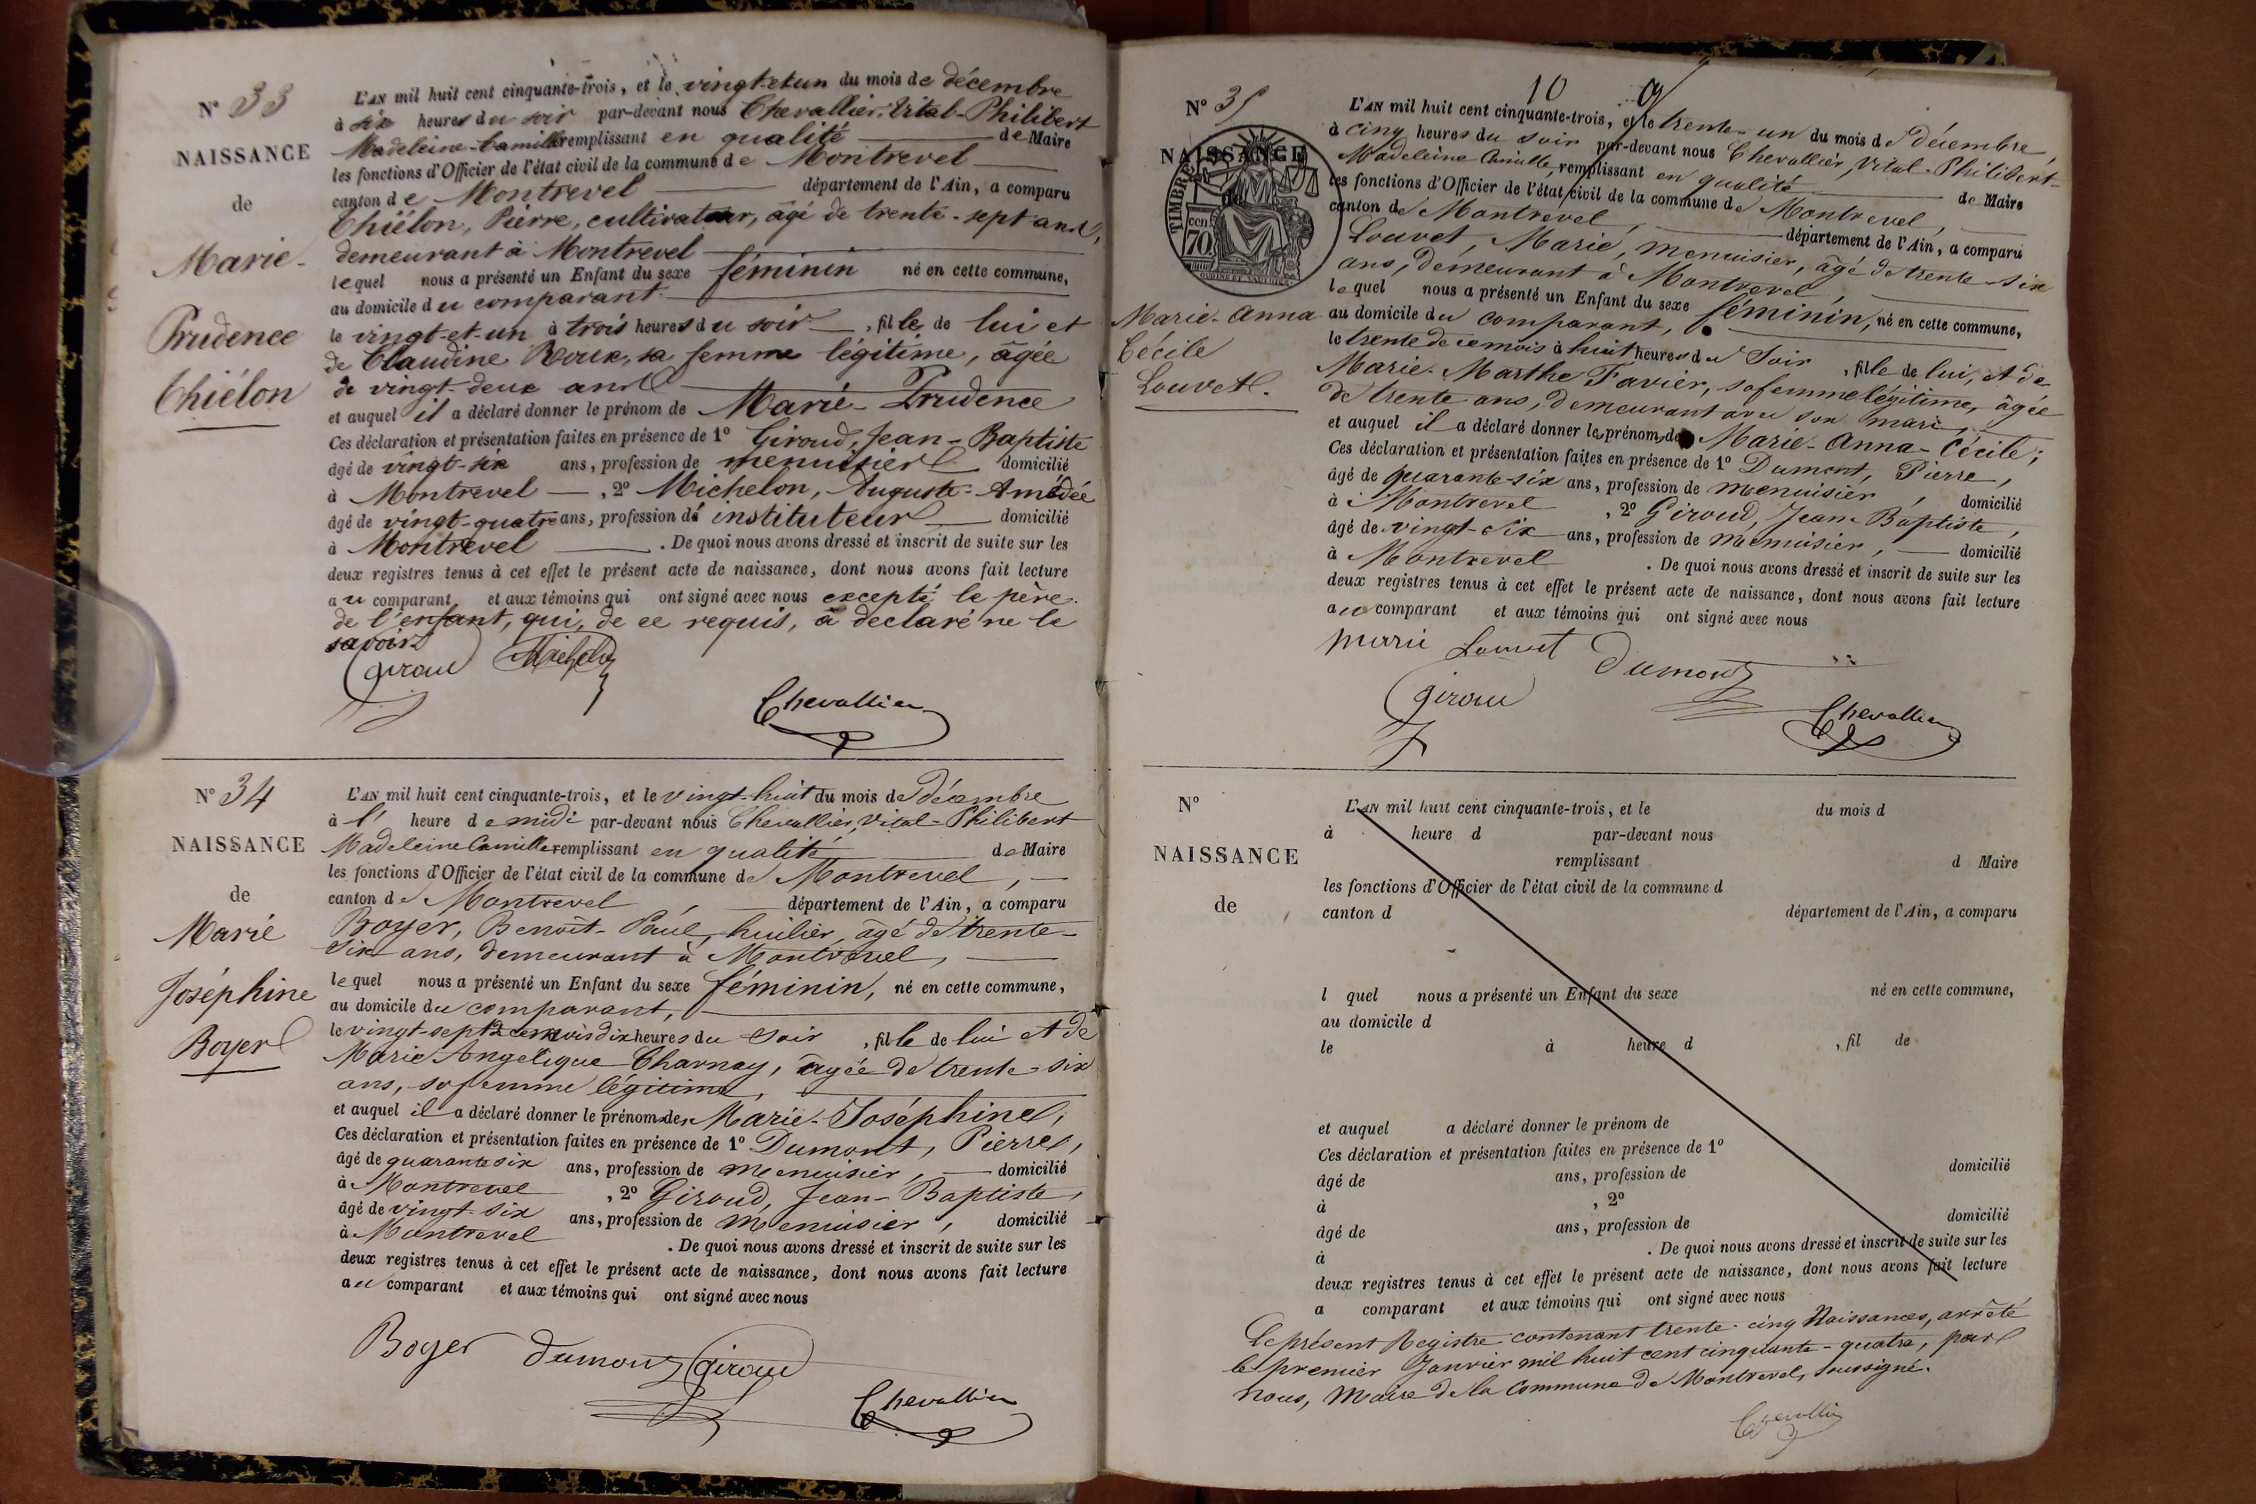 N° 33
NAISSANCE
de
Marie-
Prudence
Chiélon
L'AN mil huit cent cinquante-trois, et le vingt-et-un du mois de décembre
à six heures du soir par-devant nous Chevallier, Vital-Philibert
Madeleine-Camille remplissant en qualité de Maire
les fonctions d'Officier de l'état civil de la commune de Montrevel
canton de Montrevel département de l'Ain, a comparu
Chiélon, Pierre, cultivateur, âgé de trente-sept ans,
demeurant à Montrevel
lequel nous a présenté un Enfant du sexe féminin né en cette commune,
au domicile du comparant.
le vingt-et-un à trois heures du soir, fille de lui et
de Claudine Roux, sa femme légitime, âgée
de vingt-deux ans
et auquel il a déclaré donner le prénom de Marie-Prudence
Ces déclaration et présentation faites en présence de 1° Giroud, Jean-Baptiste
âgé de vingt-six ans, profession de menuisier domicilié
à Montrevel, 2° Michelon, Auguste-Amédée
âgé de vingt-quatre ans, profession de instituteur domicilié
à Montrevel. De quoi nous avons dressé et inscrit de suite sur les
deux registres tenus à cet effet le présent acte de naissance, dont nous avons fait lecture
au comparant et aux témoins qui ont signé avec nous excepté le père
de l'enfant, qui, de ce requis, a déclaré ne le
savoir
Giroud Michelon
Chevallier
N° 34
NAISSANCE
de
Marie
Joséphine
Boyer
L'AN mil huit cent cinquante-trois, et le vingt-huit du mois de décembre
à l' heure de midi par-devant nous Chevallier, Vital-Philibert
Madeleine Camille remplissant en qualité de Maire
les fonctions d'Officier de l'état civil de la commune de Montrevel,
canton de Montrevel, département de l'Ain, a comparu
Boyer, Benoît-Paul, huilier, âgé de trente-
six ans, demeurant à Montrevel,
lequel nous a présenté un Enfant du sexe féminin, né en cette commune,
au domicile du comparant,
le vingt-sept de ce mois à dix heures du soir, fille de lui et de
Marie Angélique Charnay, âgée de trente-six
ans, sa femme légitime,
et auquel il a déclaré donner les prénoms de Marie-Joséphine,
Ces déclaration et présentation faites en présence de 1° Dumont, Pierre,
âgé de quarante six ans, profession de menuisier, domicilié
à Montrevel, 2° Giroud, Jean-Baptiste,
âgé de vingt-six ans, profession de menuisier, domicilié
à Montrevel. De quoi nous avons dressé et inscrit de suite sur les
deux registres tenus à cet effet le présent acte de naissance, dont nous avons fait lecture
au comparant et aux témoins qui ont signé avec nous
Boyer Dumont Giroud
Chevallier
10
N° 35
NAISSANCE
de
TIMBRE
cen
70
Marie-Anna
Cécile
Louvet.
L'AN mil huit cent cinquante-trois, et le trente-un du mois de décembre,
à cinq heures du soir par-devant nous Chevallier, Vital-Philibert-
Madeleine Camille, remplissant en qualité de Maire
les fonctions d'Officier de l'état civil de la commune de Montrevel,
canton de Montrevel, département de l'Ain, a comparu
Louvet, Marie, menuisier, âgé de trente-six
ans, demeurant à Montrevel,
lequel nous a présenté un Enfant du sexe féminin, né en cette commune,
au domicile du comparant,
le trente de ce mois à huit heures du soir, fille de lui, et de
Marie-Marthe Favier, sa femme légitime, âgée
de trente ans, demeurant avec son mari,
et auquel il a déclaré donner les prénoms de Marie-Anna-Cécile;
Ces déclaration et présentation faites en présence de 1° Dumont, Pierre,
âgé de quarante-six ans, profession de menuisier, domicilié
à Montrevel, 2° Giroud, Jean-Baptiste,
âgé de vingt-six ans, profession de menuisier, domicilié
à Montrevel. De quoi nous avons dressé et inscrit de suite sur les
deux registres tenus à cet effet le présent acte de naissance, dont nous avons fait lecture
au comparant et aux témoins qui ont signé avec nous
Marie Louvet Dumont
Giroud
Chevallier
N°
NAISSANCE
de
L'AN mil huit cent cinquante-trois, et le du mois d
à heure d par-devant nous
remplissant d Maire
les fonctions d'Officier de l'état civil de la commune d
canton d département de l'Ain, a comparu
l quel nous a présenté un Enfant du sexe né en cette commune,
au domicile d
le à heure d , fil de
et auquel a déclaré donner le prénom de
Ces déclaration et présentation faites en présence de 1°
âgé de ans, profession de domicilié
à , 2°
âgé de ans, profession de domicilié
à . De quoi nous avons dressé et inscrit de suite sur les
deux registres tenus à cet effet le présent acte de naissance, dont nous avons fait lecture
a comparant et aux témoins qui ont signé avec nous
Le présent Registre contenant trente-cinq Naissances, arrêté
le premier Janvier mil huit cent cinquante-quatre, par
nous, Maire de la Commune de Montrevel, soussigné.
Chevallier